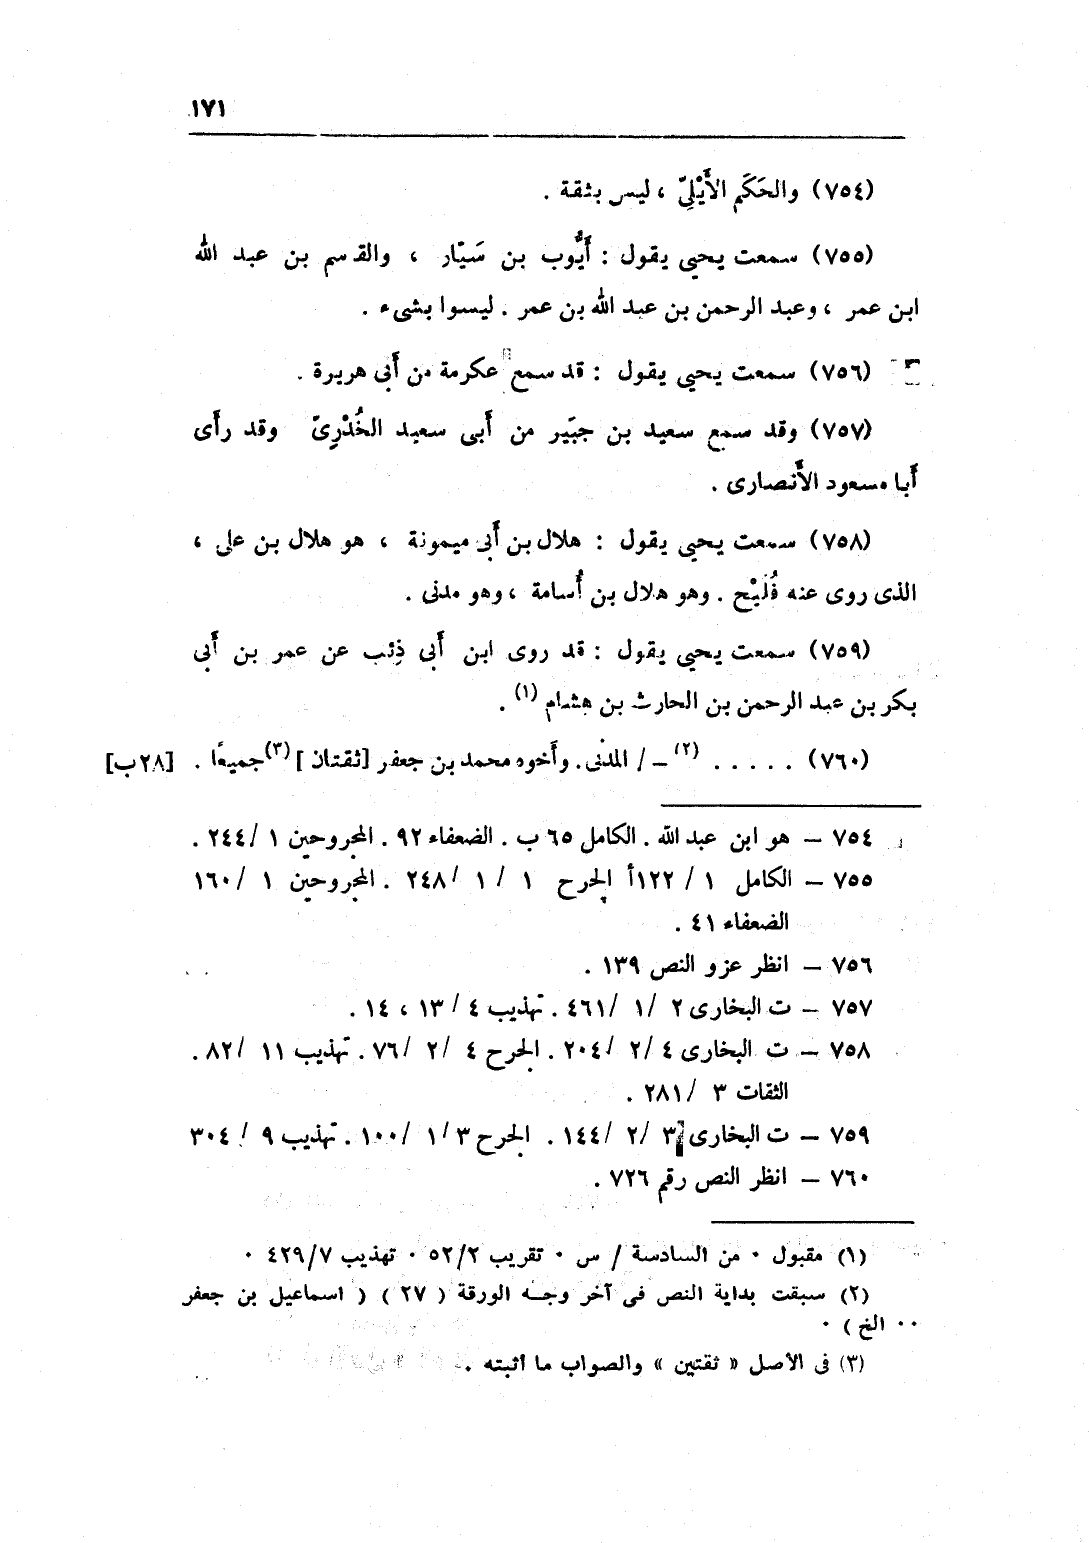 ١٧١
(٧٥٤) والحَكَم الأَيْلِيّ ، ليس بثقة .
(٧٥٥) سمعت يحيى يقول : أَيُّوب بن سَيّار ، والقسم بن عبد الله
ابن عمر ، وعبد الرحمن بن عبد الله بن عمر . ليسوا بشىء .
(٧٥٦) سمعت يحيى يقول : قد سمع عكرمة من أَبى هريرة .
(٧٥٧) وقد سمع سعيد بن جبَير من أَبى سعيد الخُدْرِىّ وقد رأَى
أَبا مسعود الأَنصارى .
(٧٥٨) سمعت يحيى يقول : هلال بن أَبى ميمونة ، هو هلال بن على ،
الذى روى عنه فُلَيْح . وهو هلال بن أُسامة ، وهو مدنى .
(٧٥٩) سمعت يحيى يقول : قد روى ابن أَبى ذِئب عن عمر بن أَبى
بكر بن عبد الرحمن بن الحارث بن هِشام (١) .
(٧٦٠) . . . . . (٢) ـ / المدنى . وأَخوه محمد بن جعفر [ثقتان ] (٣) جميعًا . [٢٨ب]
٧٥٤ – هو ابن عبد الله . الكامل ٦٥ ب . الضعفاء ٩٢ . المجروحين ١ /٢٤٤ .
٧٥٥ – الكامل ١ / ١٢٢أ الجرح ١ / ١ /٢٤٨ . المجروحين ١ /١٦٠
الضعفاء ٤١ .
٧٥٦ – انظر عزو النص ١٣٩ .
٧٥٧ – ت البخارى ٢ /١ /٤٦١ . تهذيب ٤ / ١٣ ، ١٤ .
٧٥٨ – ت البخارى ٤ /٢ /٢٠٤ . الجرح ٤ /٢ /٧٦ . تهذيب ١١ /٨٢ .
الثقات ٣ /٢٨١ .
٧٥٩ – ت البخارى ٣ /٢ /١٤٤ . الجرح ٣ /١ /١٠٠ . تهذيب ٩ / ٣٠٤
٧٦٠ – انظر النص رقم ٧٢٦ .
(١) مقبول ٠ من السادسة / س ٠ تقريب ٥٢/٢ ٠ تهذيب ٤٢٩/٧ ٠
(٢) سبقت بداية النص فى آخر وجه الورقة ( ٢٧ ) ( اسماعيل بن جعفر
٠٠ الخ ) ٠
(٣) فى الأصل « ثقتين » والصواب ما أثبته .